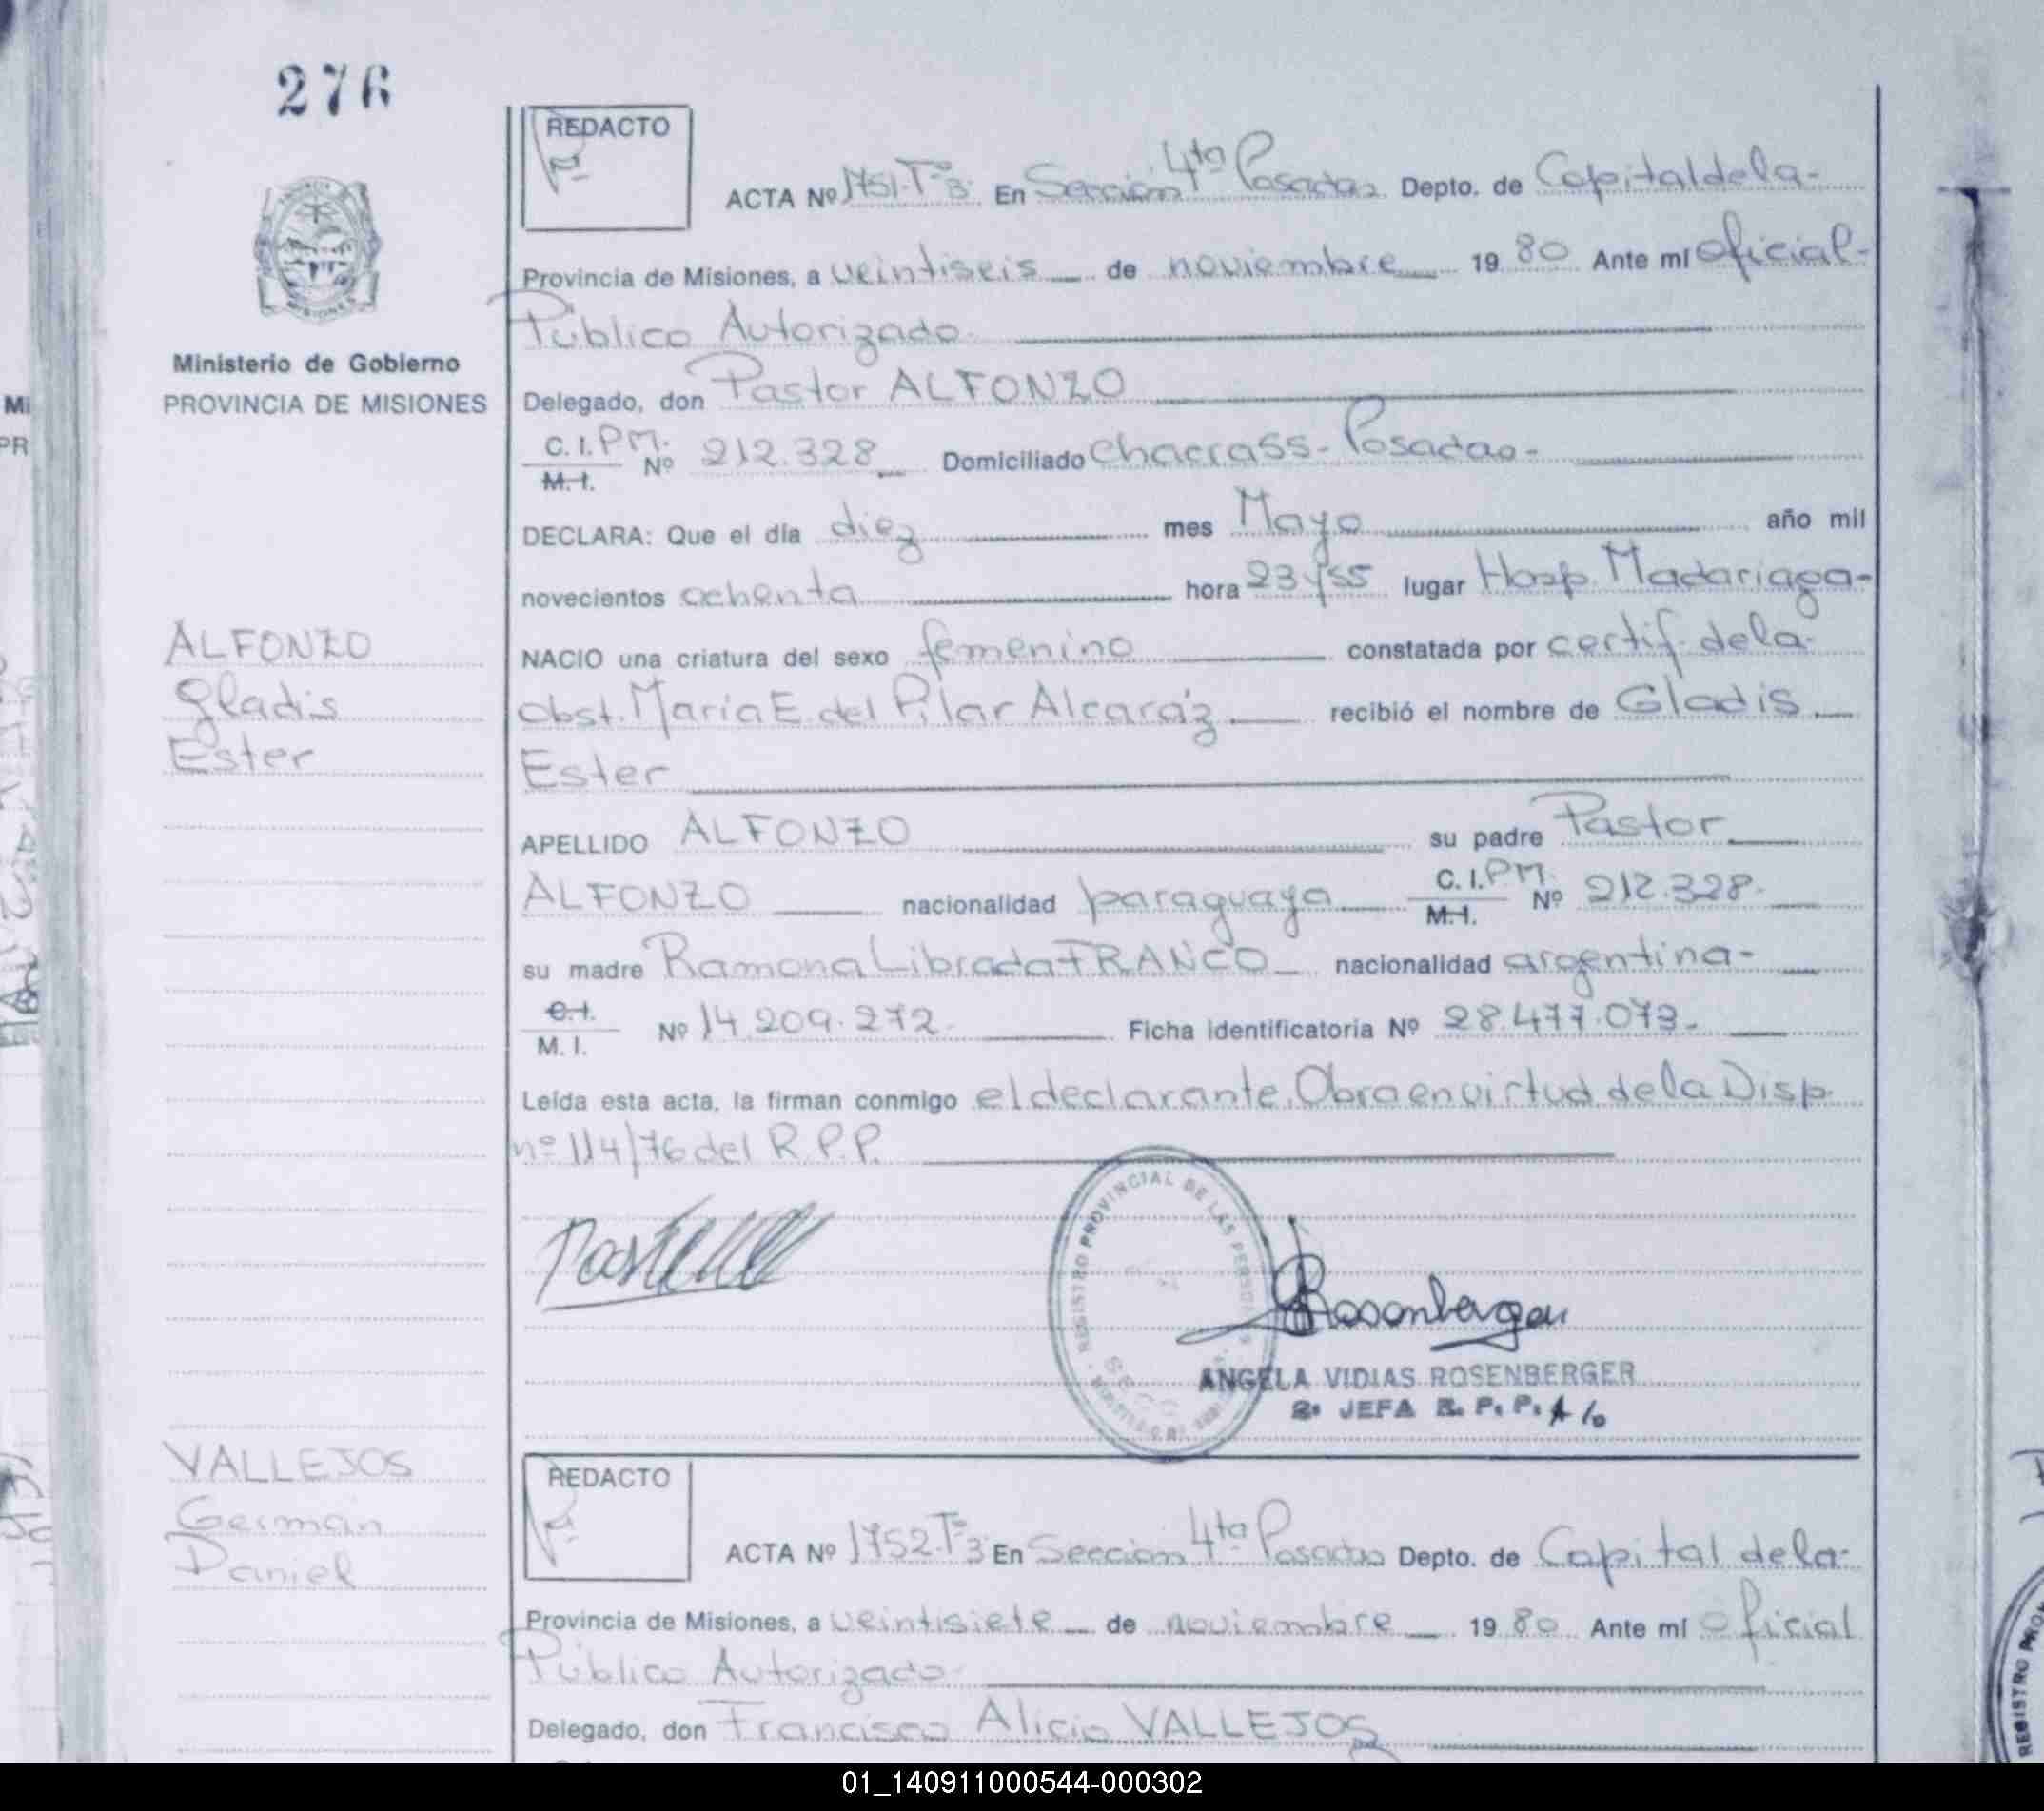 276
REDACTO
ACTA Nº 1751.Tº3. En Sección 4ta Posadas Depto. de Capital de la-
Provincia de Misiones, a veintiseis de noviembre 1980 Ante mí Oficial-
Público Autorizado.
Ministerio de Gobierno
PROVINCIA DE MISIONES
Delegado, don Pastor ALFONZO
C.I.PM. Nº 212.328 Domiciliado Chacra 55- Posadas-
M.I.
DECLARA: Que el día diez mes Mayo año mil
novecientos ochenta hora 23y55 lugar Hosp. Madariaga-
ALFONZO
Gladis
Ester
NACIO una criatura del sexo femenino constatada por certif. de la-
obst. María E. del Pilar Alcaráz recibió el nombre de Gladis
Ester
APELLIDO ALFONZO su padre Pastor
ALFONZO nacionalidad paraguaya C.I.PM. Nº 212.328.
M.I.
su madre Ramona Librada FRANCO nacionalidad argentina-
C.I.
M.I. Nº 14.209.272. Ficha identificatoria Nº 28.477.073.
Leída esta acta, la firman conmigo el declarante. Obra en virtud de la Disp.
nº 114/76 del R.P.P.
REGISTRO PROVINCIAL DE LAS PERSONAS
Rosenberger
ANGELA VIDIAS ROSENBERGER
2ª JEFA R. P. P. A/c
VALLEJOS
Germán
Daniel
REDACTO
ACTA Nº 1752.Tº3 En Sección 4ta Posadas Depto. de Capital de la-
Provincia de Misiones, a veintisiete de noviembre 1980 Ante mí Oficial
Público Autorizado.
Delegado, don Francisco Alicio VALLEJOS
REGISTRO PRO
01_140911000544-000302